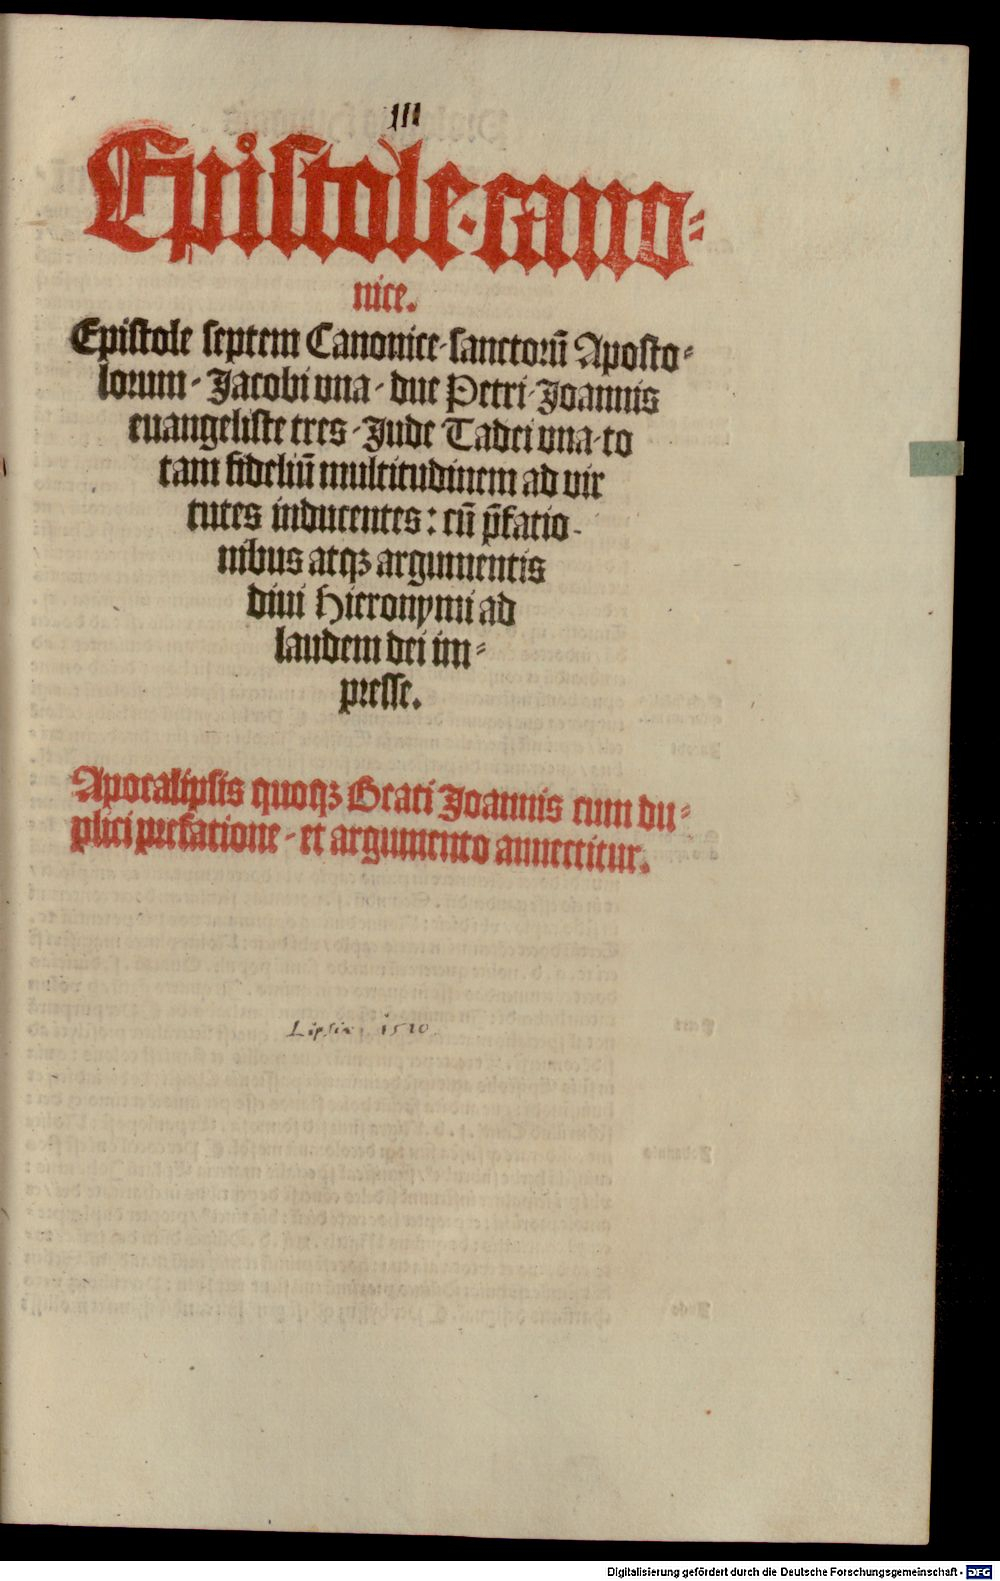 III
Epistole·cano⸗
nice.
Epistole septem Canonice·sanctorū Aposto⸗
lorum·Jacobi vna·due Petri·Joannis
euangeliste tres·Jude Tadei vna·to
tam fideliū multitudinem ad vir
tutes inducentes: cū p̄fatio⸗
nibus atqꝫ argumentis
diui Hieronymi ad
laudem dei im⸗
presse.
Apocalipsis quoqꝫ Beati Joannis cum du⸗
plici prefatione·et argumento annectitur.
Lipsiae, 1510.
Digitalisierung gefördert durch die Deutsche Forschungsgemeinschaft - DFG